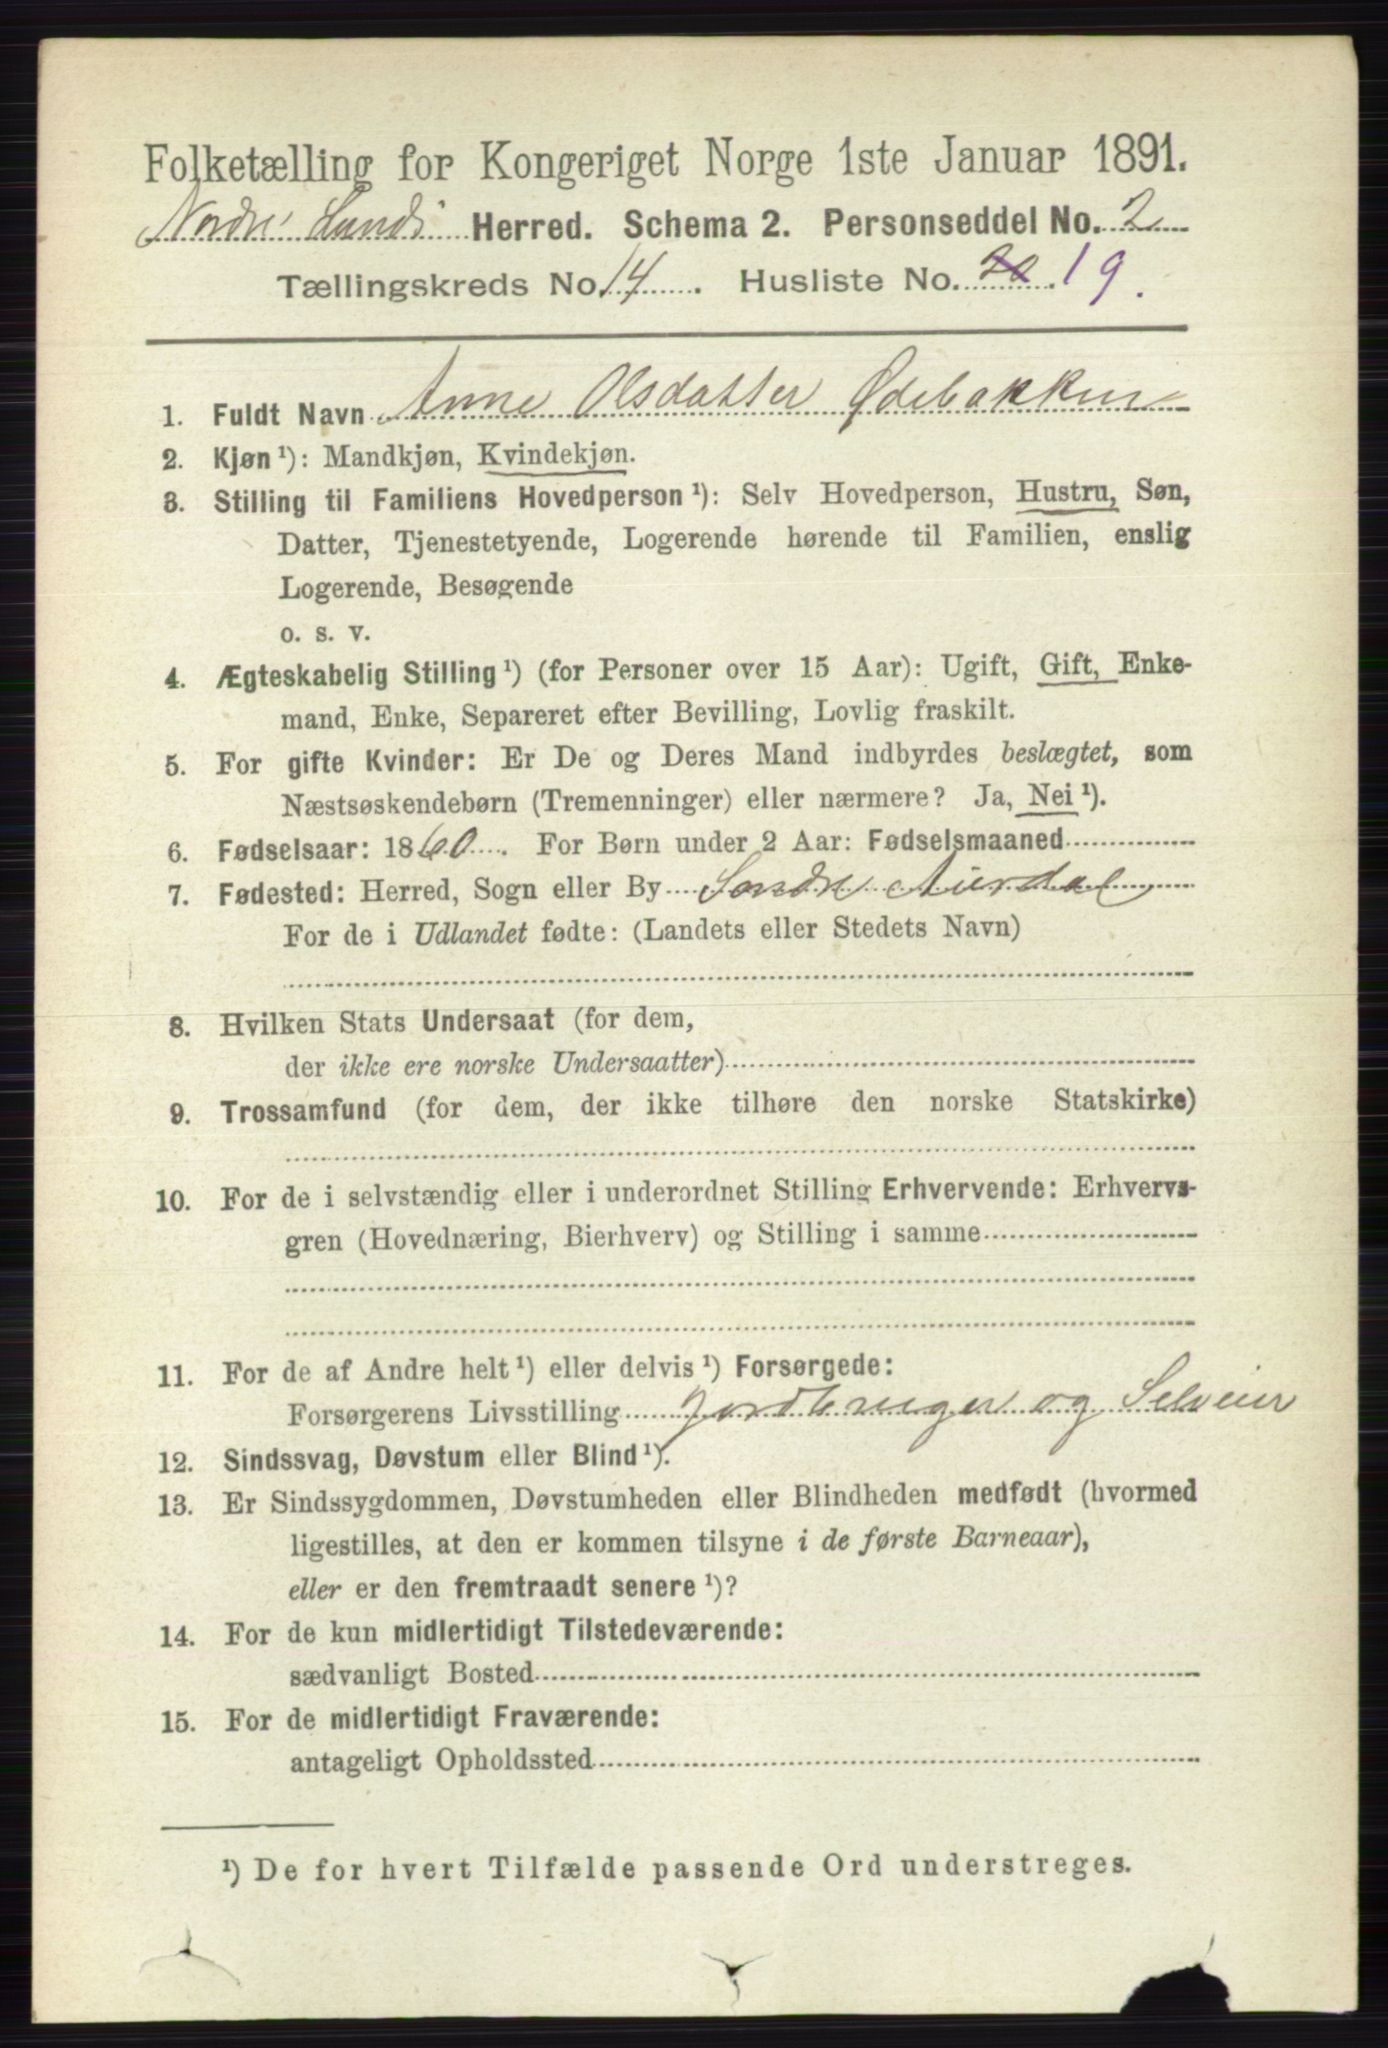 Folketælling for Kongeriget Norge 1ste Januar 1891.
Nordre Lands Herred. Schema 2. Personseddel No. 2
Tællingskreds No. 14. Husliste No. 20. 19.
1. Fuldt Navn Anne Olsdatter Ødebakken
2. Kjøn ¹): Mandkjøn, Kvindekjøn.
3. Stilling til Familiens Hovedperson ¹): Selv Hovedperson, Hustru, Søn,
Datter, Tjenestetyende, Logerende hørende til Familien, enslig
Logerende, Besøgende
o. s. v.
4. Ægteskabelig Stilling ¹) (for Personer over 15 Aar): Ugift, Gift, Enke-
mand, Enke, Separeret efter Bevilling, Lovlig fraskilt.
5. For gifte Kvinder: Er De og Deres Mand indbyrdes beslægtet, som
Næstsøskendebørn (Tremenninger) eller nærmere? Ja, Nei ¹).
6. Fødselsaar: 1860. For Børn under 2 Aar: Fødselsmaaned
7. Fødested: Herred, Sogn eller By Søndre Aurdal
For de i Udlandet fødte: (Landets eller Stedets Navn)
8. Hvilken Stats Undersaat (for dem,
der ikke ere norske Undersaatter)
9. Trossamfund (for dem, der ikke tilhøre den norske Statskirke)
10. For de i selvstændig eller i underordnet Stilling Erhvervende: Erhvervs-
gren (Hovednæring, Bierhverv) og Stilling i samme
11. For de af Andre helt ¹) eller delvis ¹) Forsørgede:
Forsørgerens Livsstilling Jordbruger og Selveier
12. Sindssvag, Døvstum eller Blind ¹).
13. Er Sindssygdommen, Døvstumheden eller Blindheden medfødt (hvormed
ligestilles, at den er kommen tilsyne i de første Barneaar),
eller er den fremtraadt senere ¹)?
14. For de kun midlertidigt Tilstedeværende:
sædvanligt Bosted
15. For de midlertidigt Fraværende:
antageligt Opholdssted
¹) De for hvert Tilfælde passende Ord understreges.